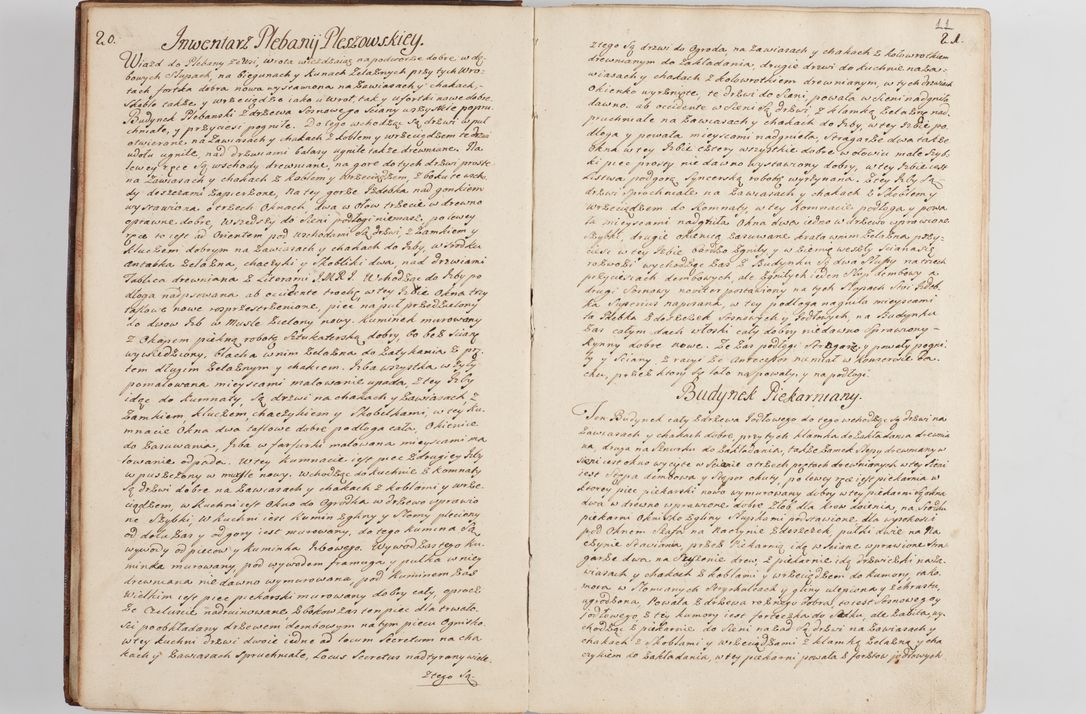 20.
Inwentarz Plebanij Pleszowskiey.
Wiazd do Plebany z Wsi, wrota wieżdzaiąc na podworze dobre w dę-
bowych słupach, na biegunach y kunach żelaznych przy tych Wro-
tach fortka dobra nowa wystawiona na zawiasach y chakach,
skoble także, y wrzeciądze iako u Wrot, tak y u fortki nowe dobre.
Budynek Plebanski z drzewa sosnowego ściany wszystkie popru-
chniałe, y przyciesi pogniłe. Do tego wchodząc są drzwi w puł
otwierane, na zawiasach y chakach z skoblem y wrzeciądzem te drzwi
udołu ugniłe, nad drzwiami balasy ugniłe także drewniane. Na
lewey ręce są wschody drewniane, na gorę do tych drzwi proste
na zawiasach y chakach z skoblem y wrzeciądzem, z boku te wscho-
dy deszczami zapierzone, na tey gorze Izdebka nad gankiem
wystawiona o trzech oknach, dwa w ołow trzecie w drewno
oprawne dobre, wszedszy do sieni podłogi niemasz, po lewey
ręce to iest ad Orientem pod wschodami są drzwi z zamkiem y
kluczem dobrym na zawiasach y chakach do Izby, w srodku
antabka żelazna, chaczyki y skoblik dwa, nad drzwiami
Tablica drewniana z Literami I.N.R.I. Wchodząc do Izby po-
dłoga nadpsowana, ab occidente trochę, w tey Izbie okna trzy
takowe nowe rozprzestrzenione, piec na puł przedzielony
do dwoch Izb w muszle zielony nowy, kuminek murowany
z okapem piękną robotą sztukaterską dobry, bo bez sciany
wysadzony, blacha w nim żelazna do zatykania z prę-
tem długim żelaznym y chakiem. Izba wszystka, w kwiaty
pomalowana mieyscami malowanie upada, z tey Izby
idąc do kumnaty, są drzwi na chakach y zawiasach, z
zamkiem kluczem chaczykiem y skobelkami, w tey Ku-
mnacie okna dwa taflowe dobre podłoga cała, okienice
do zasuwania, Izba w farfurki malowana mieyscami ma-
lowanie odpada. W tey kumnacie iest piec z drugiey Izby
wpuszczony w muszle nowy. Wchodząc do kuchnie z komnaty
są drzwi dobre na zawiasach y chakach z skoblami y wrze-
ciądzem, w kuchni iest okno do ogrodka, w drzewo oprawio-
ne szybki, w kuchni iest kumin z gliny y słomy pleciony
od dołu zas y od gory iest murowany, do tego kumina są
wywody od piecow y kuminka Izbowego. Wywod zas tego ku-
minka murowany, pod wywodem framuga y pułka w niey
drewniana nie dawno wymurowana, pod kuminem zas
wielkim iest piec piekarski murowany dobry cały, oprocz
że Czeluscie nadruinowane z bokow zas ten piec dla trwało-
sci poobkładany drzewem dembowym na tym piecu ognisko,
w tey kuchni drzwi dwoie iedne ad locum Secretum na cha-
kach y zawiasach spruchniałe, Locus Secretus nadtyrony wielce
z tego są
11
21.
z tego są drzwi do Ogroda, na zawiasach y chakach z kołowrotkiem
drewnianym do zakładania, drugie drzwi do kuchnie na za-
wiasach y chakach z kołowrotkiem drewnianym, w tych drzwiach
okienko wyrznięte, te drzwi do sieni, powała w sieni nadgniła
dawno, ab occidente w sieni są drzwi z klamką żelazną nad-
pruchniałe na zawiasach y chakach do Izby, w tey Izbie po-
dłoga y powała mieyscami nadgniła, stragarze dwa także
okna w tey Izbie cztery wszystkie dobre w ołowiu małe szyb-
ki piec prosty nie dawno wystawiony dobry, w tey Izbie iest
Listwa pod gorą snycerską robotą wyrzynana. Z tey Izby są
drzwi spruchniałe na zawiasach y chakach z skoblem y
wrzeciądzem do komnaty, w tey komnacie podłoga y powa-
ła mieyscami nadgniła okna dwa iedno w drzewo uprawione
szybki, drugie okienicą zasuwane, krata w nim żelazna przy-
ciesi w tey Izbie bardzo zgniły y w ziemię weszły sciana się
rozwozi, wychodząc zas z Budynku są dwa słupy na tych
przyciesiach sosnowych ale zgniłych ieden słup dembowy a
drugi sosnowy noviter postawiony na tych słupach stoi Izdeb-
ka superius napisana, w tey podłoga nagniła mieyscami
ta Izdebka z dezczek sosnowych y iodłowych, na Budynku
zas całym dach włoski cały dobry niedawno sprawiony
Rynny dobre nowe. Ze zas podłogi stragarze y powały pogni-
ły y sciany z racyi że Antecessor nie miał w konserwie Da-
chu, przez ktory się lało na powały, y na podłogi.
Budynek Piekarniany.
Ten Budynek cały z drzewa iodłowego do tego wchodząc są drzwi na
zawiasach y chakach dobre przy tych klamka do zakładania drewnia-
na, druga na sznurku do zakładania, także zamek ślepy drewniany w
sieni iest okno wycięte w scianie o trzech prętach drewnianych w tey sieni
iest stępa dembowa y stępor okuty, po lewey ręce iest piekarnia w
ktorey piec piekarski nowo wymurowany dobry w tey piekarni są okna
dwa w drewno uprawione dobre złob dla krow doienia, na srodku
piekarni ognisko z gliny słupkami podstawione, dla wysokosci
pod oknem szafa na naczynie z deszczek pułki dwie na Na-
czynie stawiania przez Piekarnią idą w scianę uprawione stra-
garze dwa na suszenie drew, z piekarnie idą drzwiczki na za-
wiasach y chakach z skoblami y wrzeciądzem do kumory, tako-
wosa w słomianych strychułkach y gliny ulepiona y z chrustu
ugrodzona, Powała z drzewa rożnego dobra, to iest sosnowego y
iodłowego, z tey kumory iest forteczka do sadku, ale zabita, wy-
chodząc z piekarnie do sieni na zad są drzwi na zawiasach y
chakach z skoblami y wrzeciądzami z klamką żelazną y cha-
czykiem do zakładania, w tey piekarni powała z forsztow iodłowych